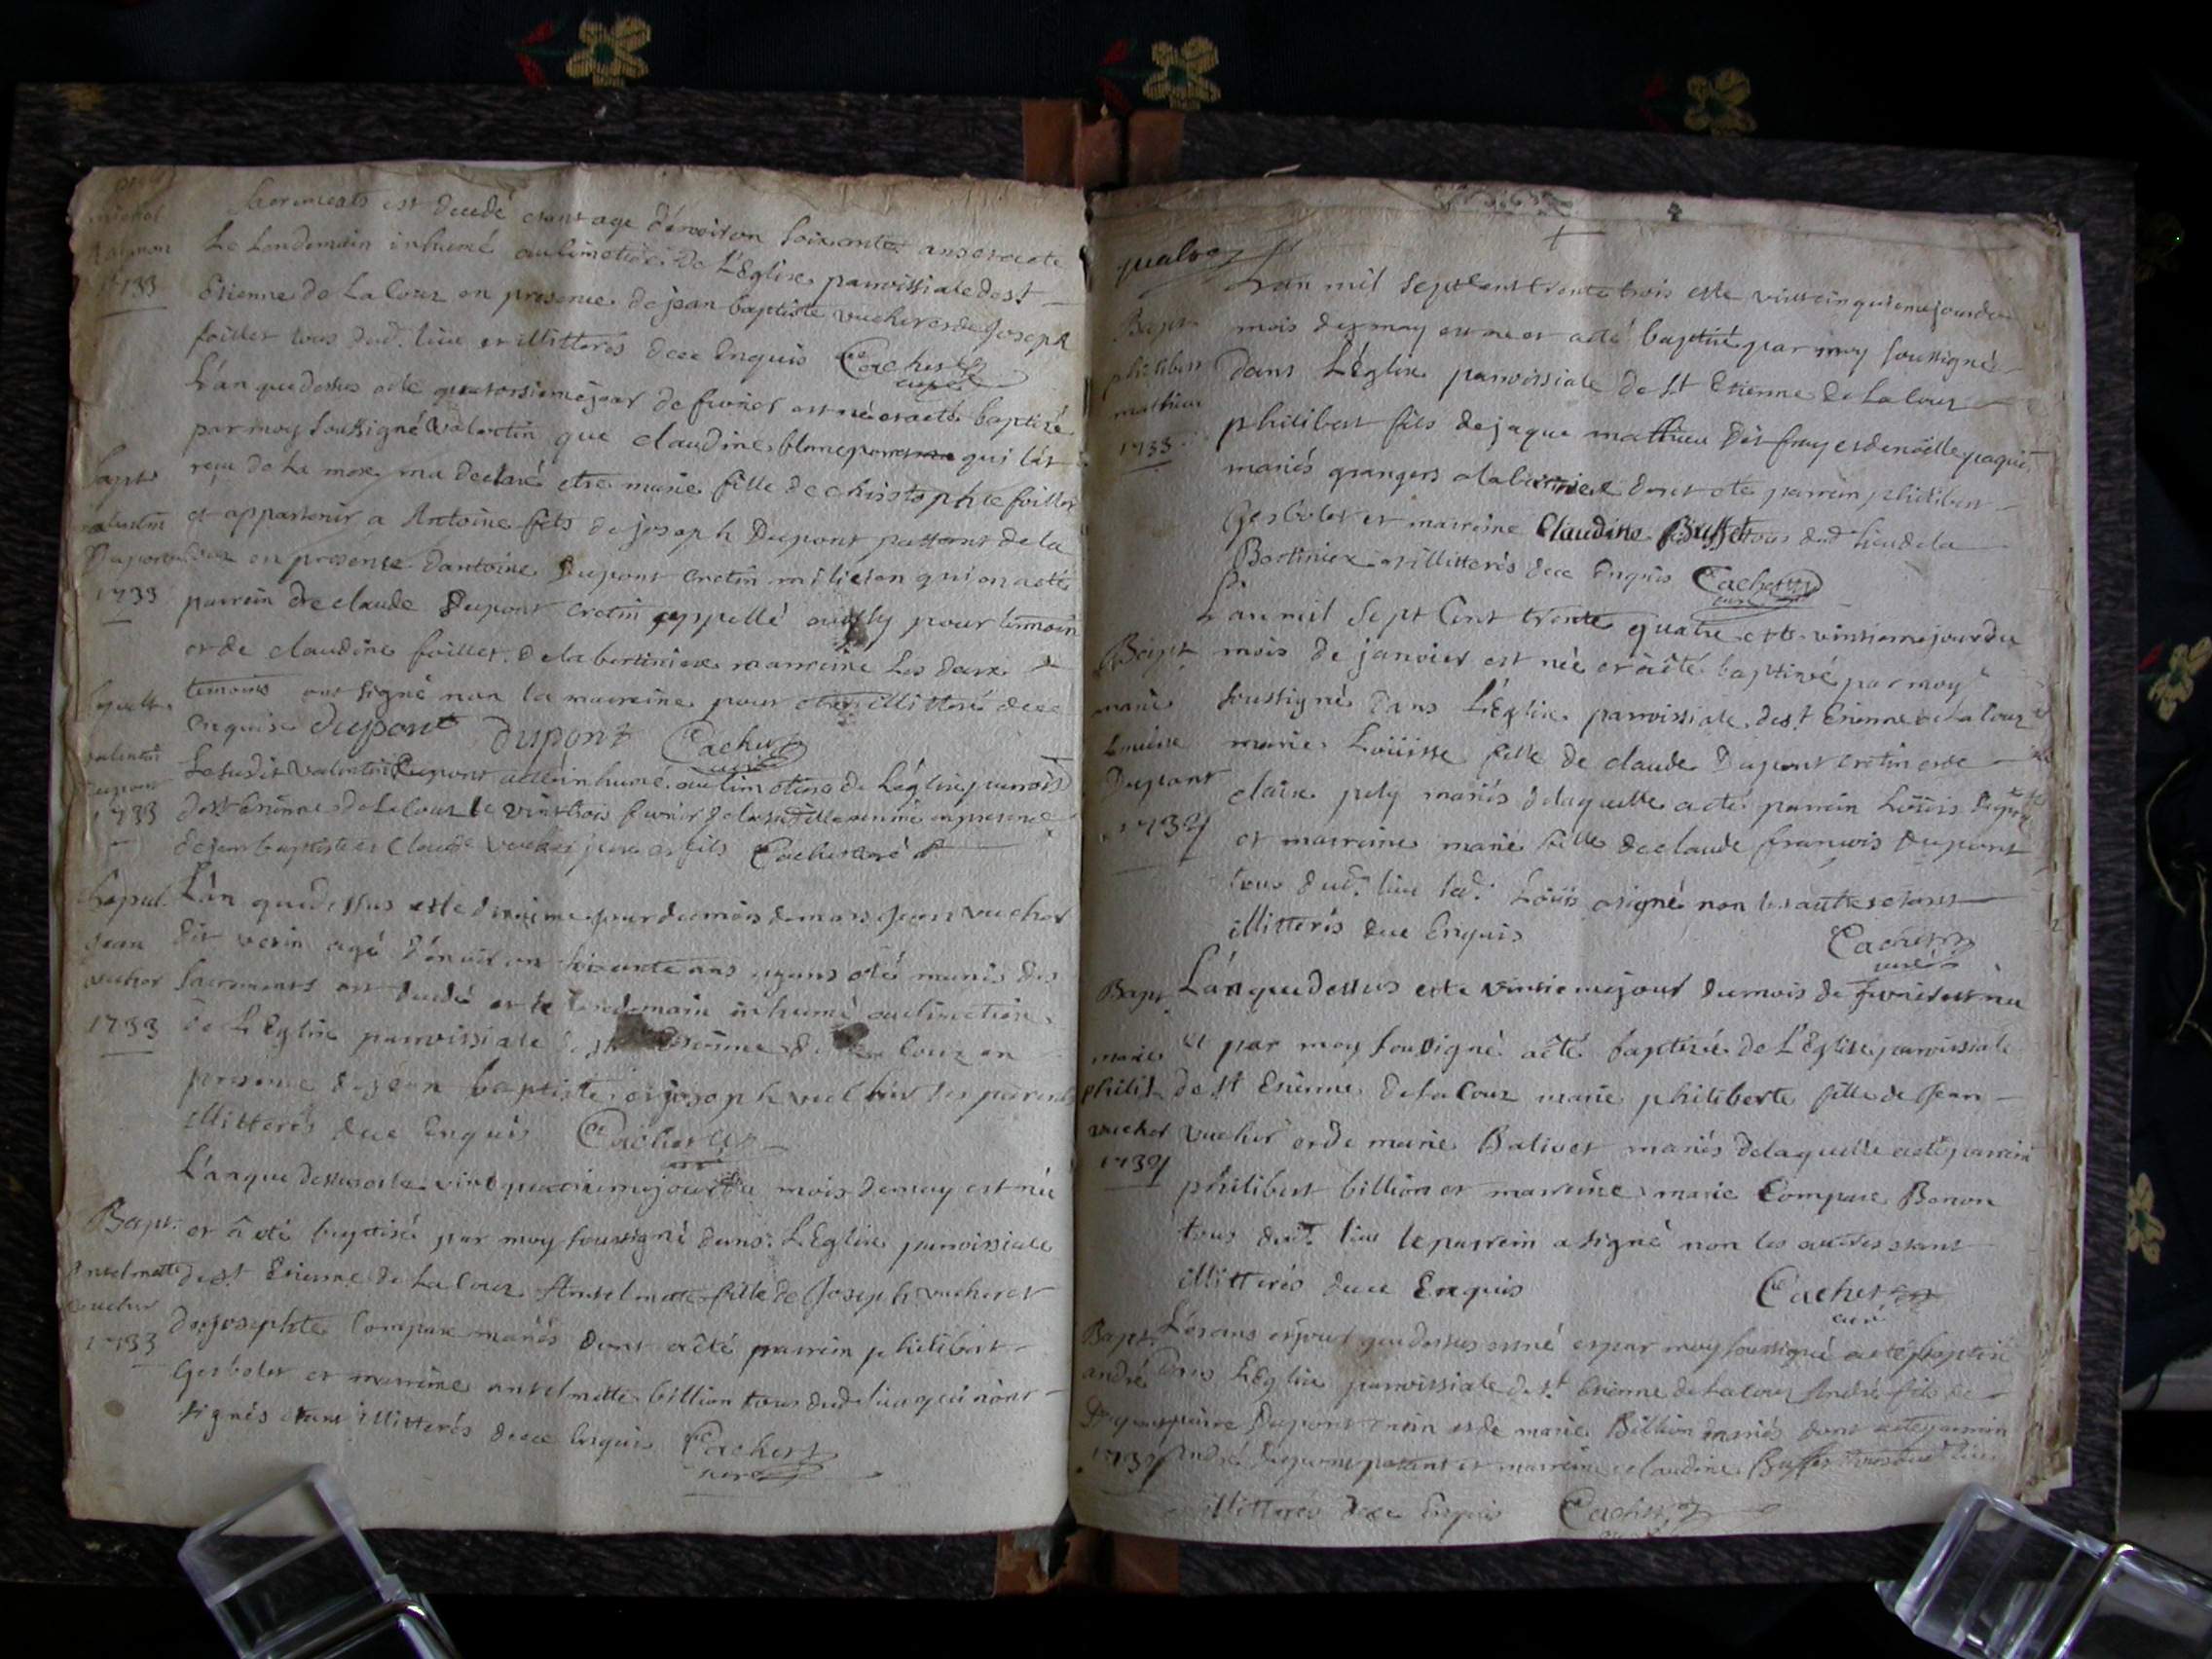 michel
1733
sacremens est decedé etant agé d'environ soixante ans et a été
Le Lendemain inhumé au cimetiere de L'Eglise parroissiale de st
Etienne de La Cour en presence de jean baptiste vucher et de Joseph
foillet tous dud. lieu et illitterés de ce Enquis Cachet curé
L'an que dessus et le quatorsieme jour de fevrier est né et a eté baptizé
par moy soussigné valentin que claudine blanc qui l'at
reçu de la mere ma declaré etre marie fille de christophle foillet
et appartenir a Antoine fils de joseph Dupont de la
Cour en presence d'antoine Dupont cretin milicien qui en a eté
parrein et de claude Dupont cretin appellé aussy pour temoin
et de claudine foillet de la bertiniere marreine Les deux
temoins ont signé non la marreine pour etre illitteré de ce
enquise dupont dupont Cachet curé
Bapt.
valentin
Dupont
1733
Lesudit valentin Dupont a été inhumé au cimetiere de L'église parrois.
de st Etienne de La Cour le vint trois fevrier de la susditte année en presence
de jean baptiste et Claude vucher pere et fils Cachet curé
valentin
Dupont
1733
L'an que dessus et le jour du mois de mars Jean vucher
dit verin agé d'environ ans ayant eté munis des
sacremens est decedé et le lendemain inhumé au cimetiere
de L'Eglise parroissiale de st Etienne de La Cour en
presence de jean baptiste et joseph vucher ses parents
illitterés de ce Enquis Cachet curé
Sepul.
jean
vucher
1733
L'an que dessus et le vint jour du mois de may est née
et a eté baptisé par moy soussigné dans L'Eglise parroissiale
de st Etienne de La Cour Anselmette fille de Joseph vucher et
de josephte Compare mariés dont a eté parrein philibert
Gerbolet et marreine anselmette billion tous dud. lieu qui n'ont
signés etant illitterés de ce Enquis Cachet curé
Bapt.
Anselmette
vucher
1733
quatre
L'an mil sept cent trente trois et le vint cinquieme jour du
mois de may est né et a eté baptisé par moy soussigné
dans L'Eglise parroissiale de st Etienne de La Cour
philibert fils de jaque mathieu dit fray et de noëlle paquet
mariés grangers a la bertiniere dont a eté parrein philibert
Gerbolet et marreine Claudine Buffet tous dud. lieu de la
Bertiniere et illitterés de ce Enquis Cachet curé
Bapt.
philibert
mathieu
1733
L'an mil sept Cent trente quatre et le vintieme jour du
mois de janvier est née et a eté baptizé par moy
soussigné dans L'Eglise parroissiale de st Etienne de La Cour
marie Loüisse fille de claude Dupont cretin et de
claire pely mariés de laquelle a eté parrein Loüis
et marreine marie fille de claude francois Dupont
tous dud. lieu led. Loüis a signé non les autres etant
illitterés de ce Enquis Cachet curé
Bapt.
marie
Louisse
Dupont
1734
L'an que dessus et le vintieme jour du mois de fevrier est née
et par moy soussigné a eté baptizé de L'Eglise parroissiale
de st Etienne de La Cour marie philiberte fille de Jean
vucher et de marie Balivet mariés de laquelle a eté parrein
philibert billion et marreine marie Compare Benon
tous dud. lieu le parrein a signé non les autres etant
illitterés de ce Enquis Cachet curé
Bapt.
marie
philib.
vucher
1734
Les ans et jour que dessus est né et par moy soussigné a eté baptisé
dans L'Eglise parroissiale de st Etienne de La Cour André fils de
pierre Dupont et de marie Billion mariés dont a eté parrein
André Dupont et marreine claudine Buffet tous dud. lieu
illitterés de ce Enquis Cachet
Bapt.
andré
Dupont
1734